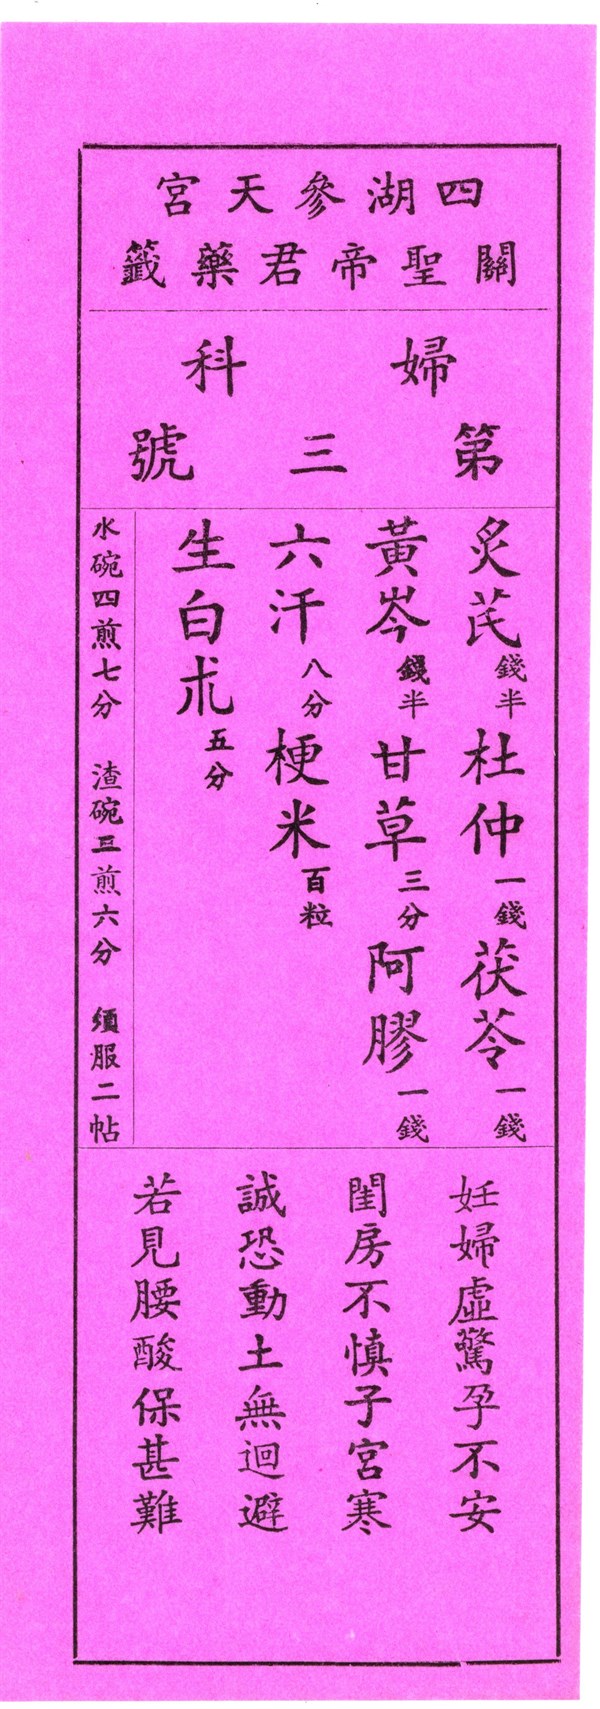 四湖參天宮
關聖帝君藥籤
婦科
第三號
炙芪錢半杜仲一錢茯苓一錢
黃岑錢半甘草三分阿膠一錢
六汗八分梗米百粒
生白朮五分
水碗四煎七分 渣碗三煎六分 須服二帖
妊婦虛驚孕不安
閨房不慎子宮寒
誠恐動土無迴避
若見腰酸保甚難